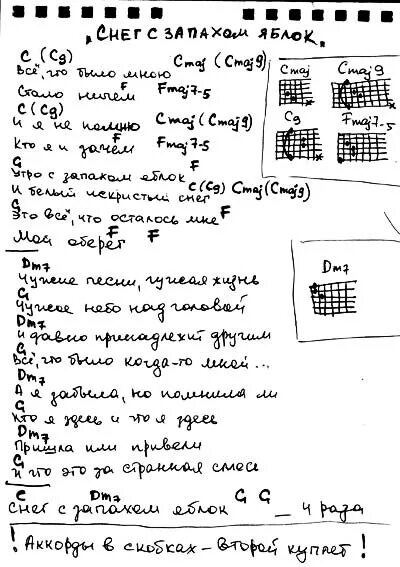 „Снег с запахом яблок"
C (C9) Cmaj (Cmaj9)
Всё, что было мною
F Fmaj7-5
Стало ничем
C (C9) Cmaj (Cmaj9)
И я не помню
F Fmaj7-5
Кто я и зачем
G F
Утро с запахом яблок
C (C9) Cmaj (Cmaj9)
И белый искристый снег
G F
Это всё, что осталось мне
F F
Мой оберег
Cmaj Cmaj9
C9 Fmaj7-5
Dm7
Dm7
Чужие песни, чужая жизнь
G
Чужое небо над головой
Dm7
И давно принадлежит другим
G
Всё, что было когда-то мной...
Dm7
А я забыла, но помнила ли
G
Кто я здесь и что я здесь
Dm7
Пришла или привели
G
И что это за странная смесь
C Dm7 G G
Снег с запахом яблок _ 4 раза
! Аккорды в скобках - второй куплет !